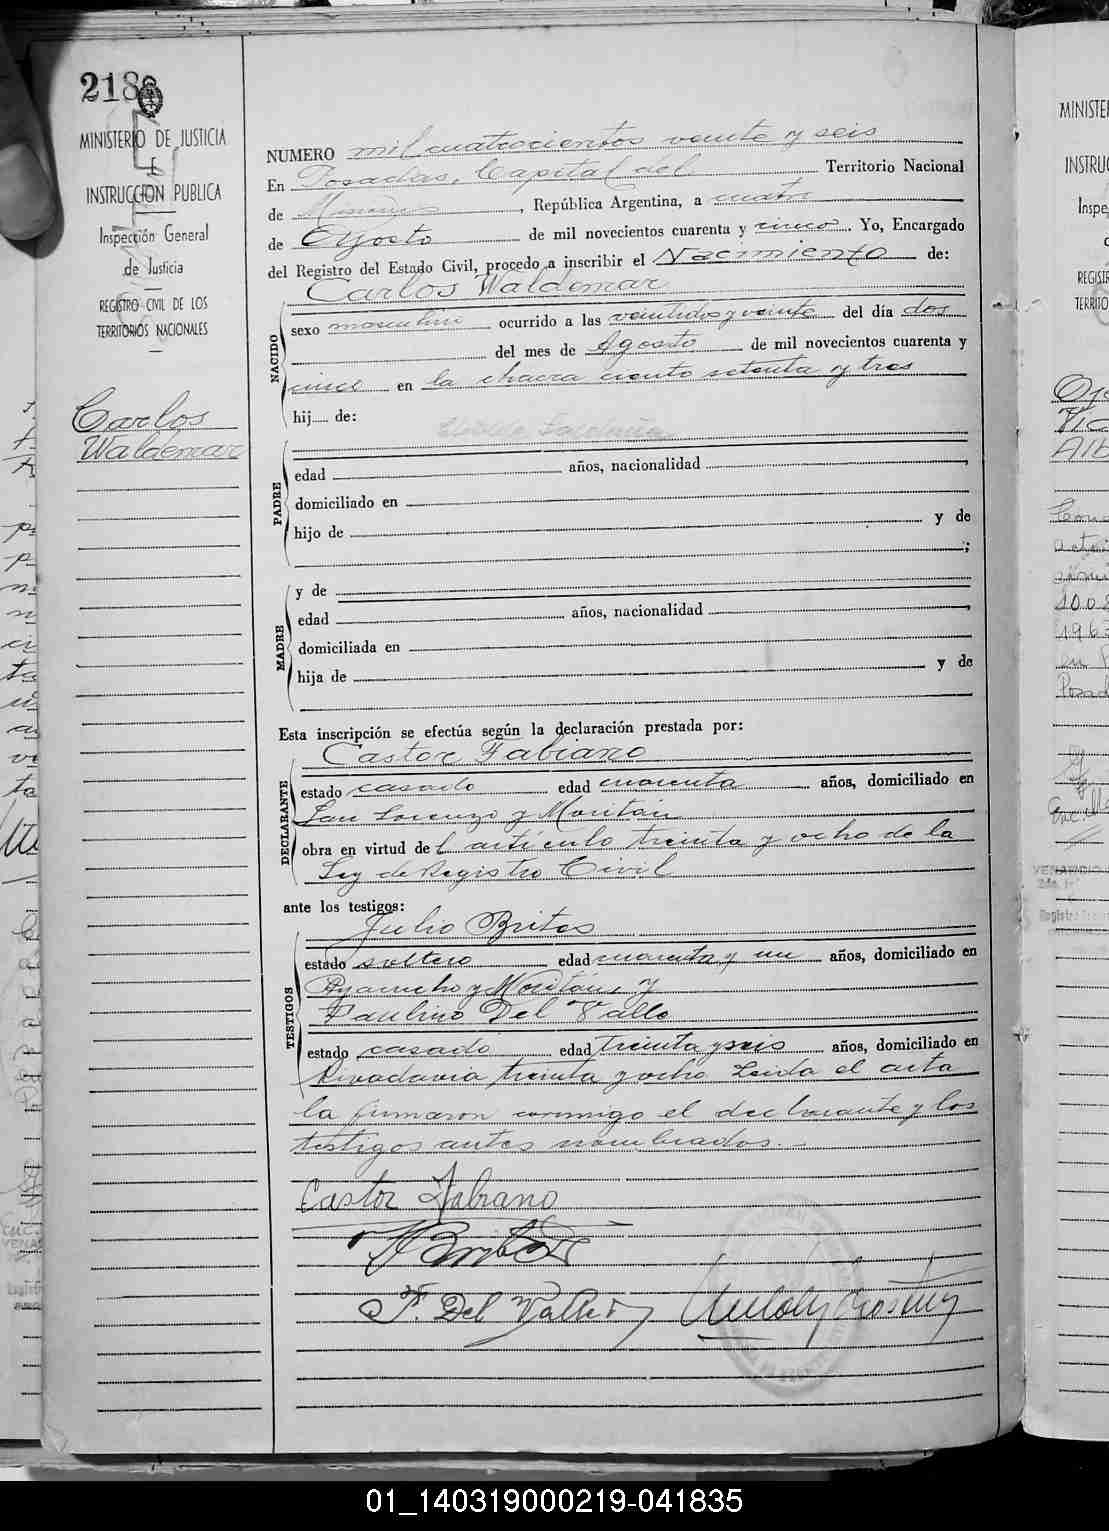 218
MINISTERIO DE JUSTICIA
E
INSTRUCCION PUBLICA
Inspección General
de Justicia
REGISTRO CIVIL DE LOS
TERRITORIOS NACIONALES
Carlos
Waldemar
NUMERO mil cuatrocientos veinte y seis
En Posadas, Capital del Territorio Nacional
de Misiones, República Argentina, a cuatro
de Agosto de mil novecientos cuarenta y cinco. Yo, Encargado
del Registro del Estado Civil, procedo a inscribir el Nacimiento de:
Carlos Waldemar
NACIDO
sexo masculino ocurrido a las veintidos y veinte del día dos
del mes de Agosto de mil novecientos cuarenta y
cinco en la chacra ciento setenta y tres
hij..... de:
PADRE
edad años, nacionalidad ,
domiciliado en
hijo de y de
;
MADRE
y de
edad años, nacionalidad ,
domiciliada en
hija de y de
Esta inscripción se efectúa según la declaración prestada por:
Castor Fabiano
DECLARANTE
estado casado edad cuarenta años, domiciliado en
San Lorenzo y Moritán
obra en virtud del artículo treinta y ocho de la
Ley de Registro Civil
ante los testigos:
Julio Brites
TESTIGOS
estado soltero edad cuarenta y un años, domiciliado en
Ayacucho y Moritán, y
Paulino Del Valle
estado casado edad treinta y seis años, domiciliado en
Rivadavia treinta y ocho. Leída el acta
la firmaron conmigo el declarante y los
testigos antes nombrados.
Castor Fabiano
P. Del Valle
MINISTE
INSTRUC
Inspe
REGISTR
TERRITO
01_140319000219-041835